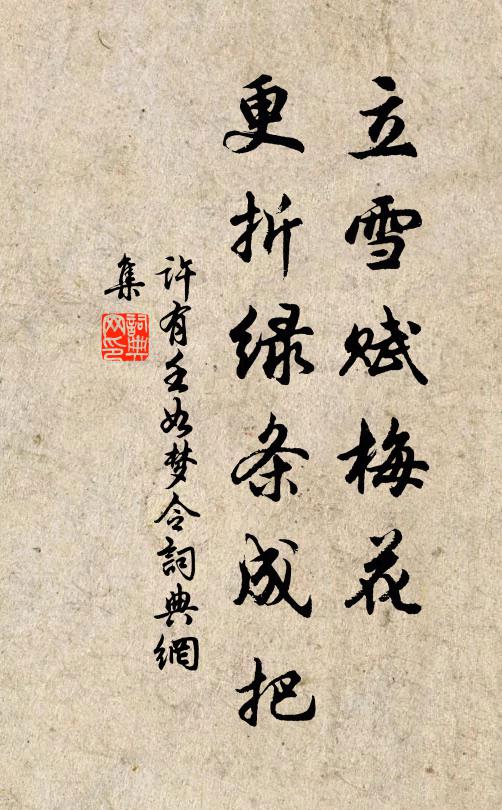 立雪赋梅花
更折绿条成把
许有壬如梦令詞典網
集
詞典网印